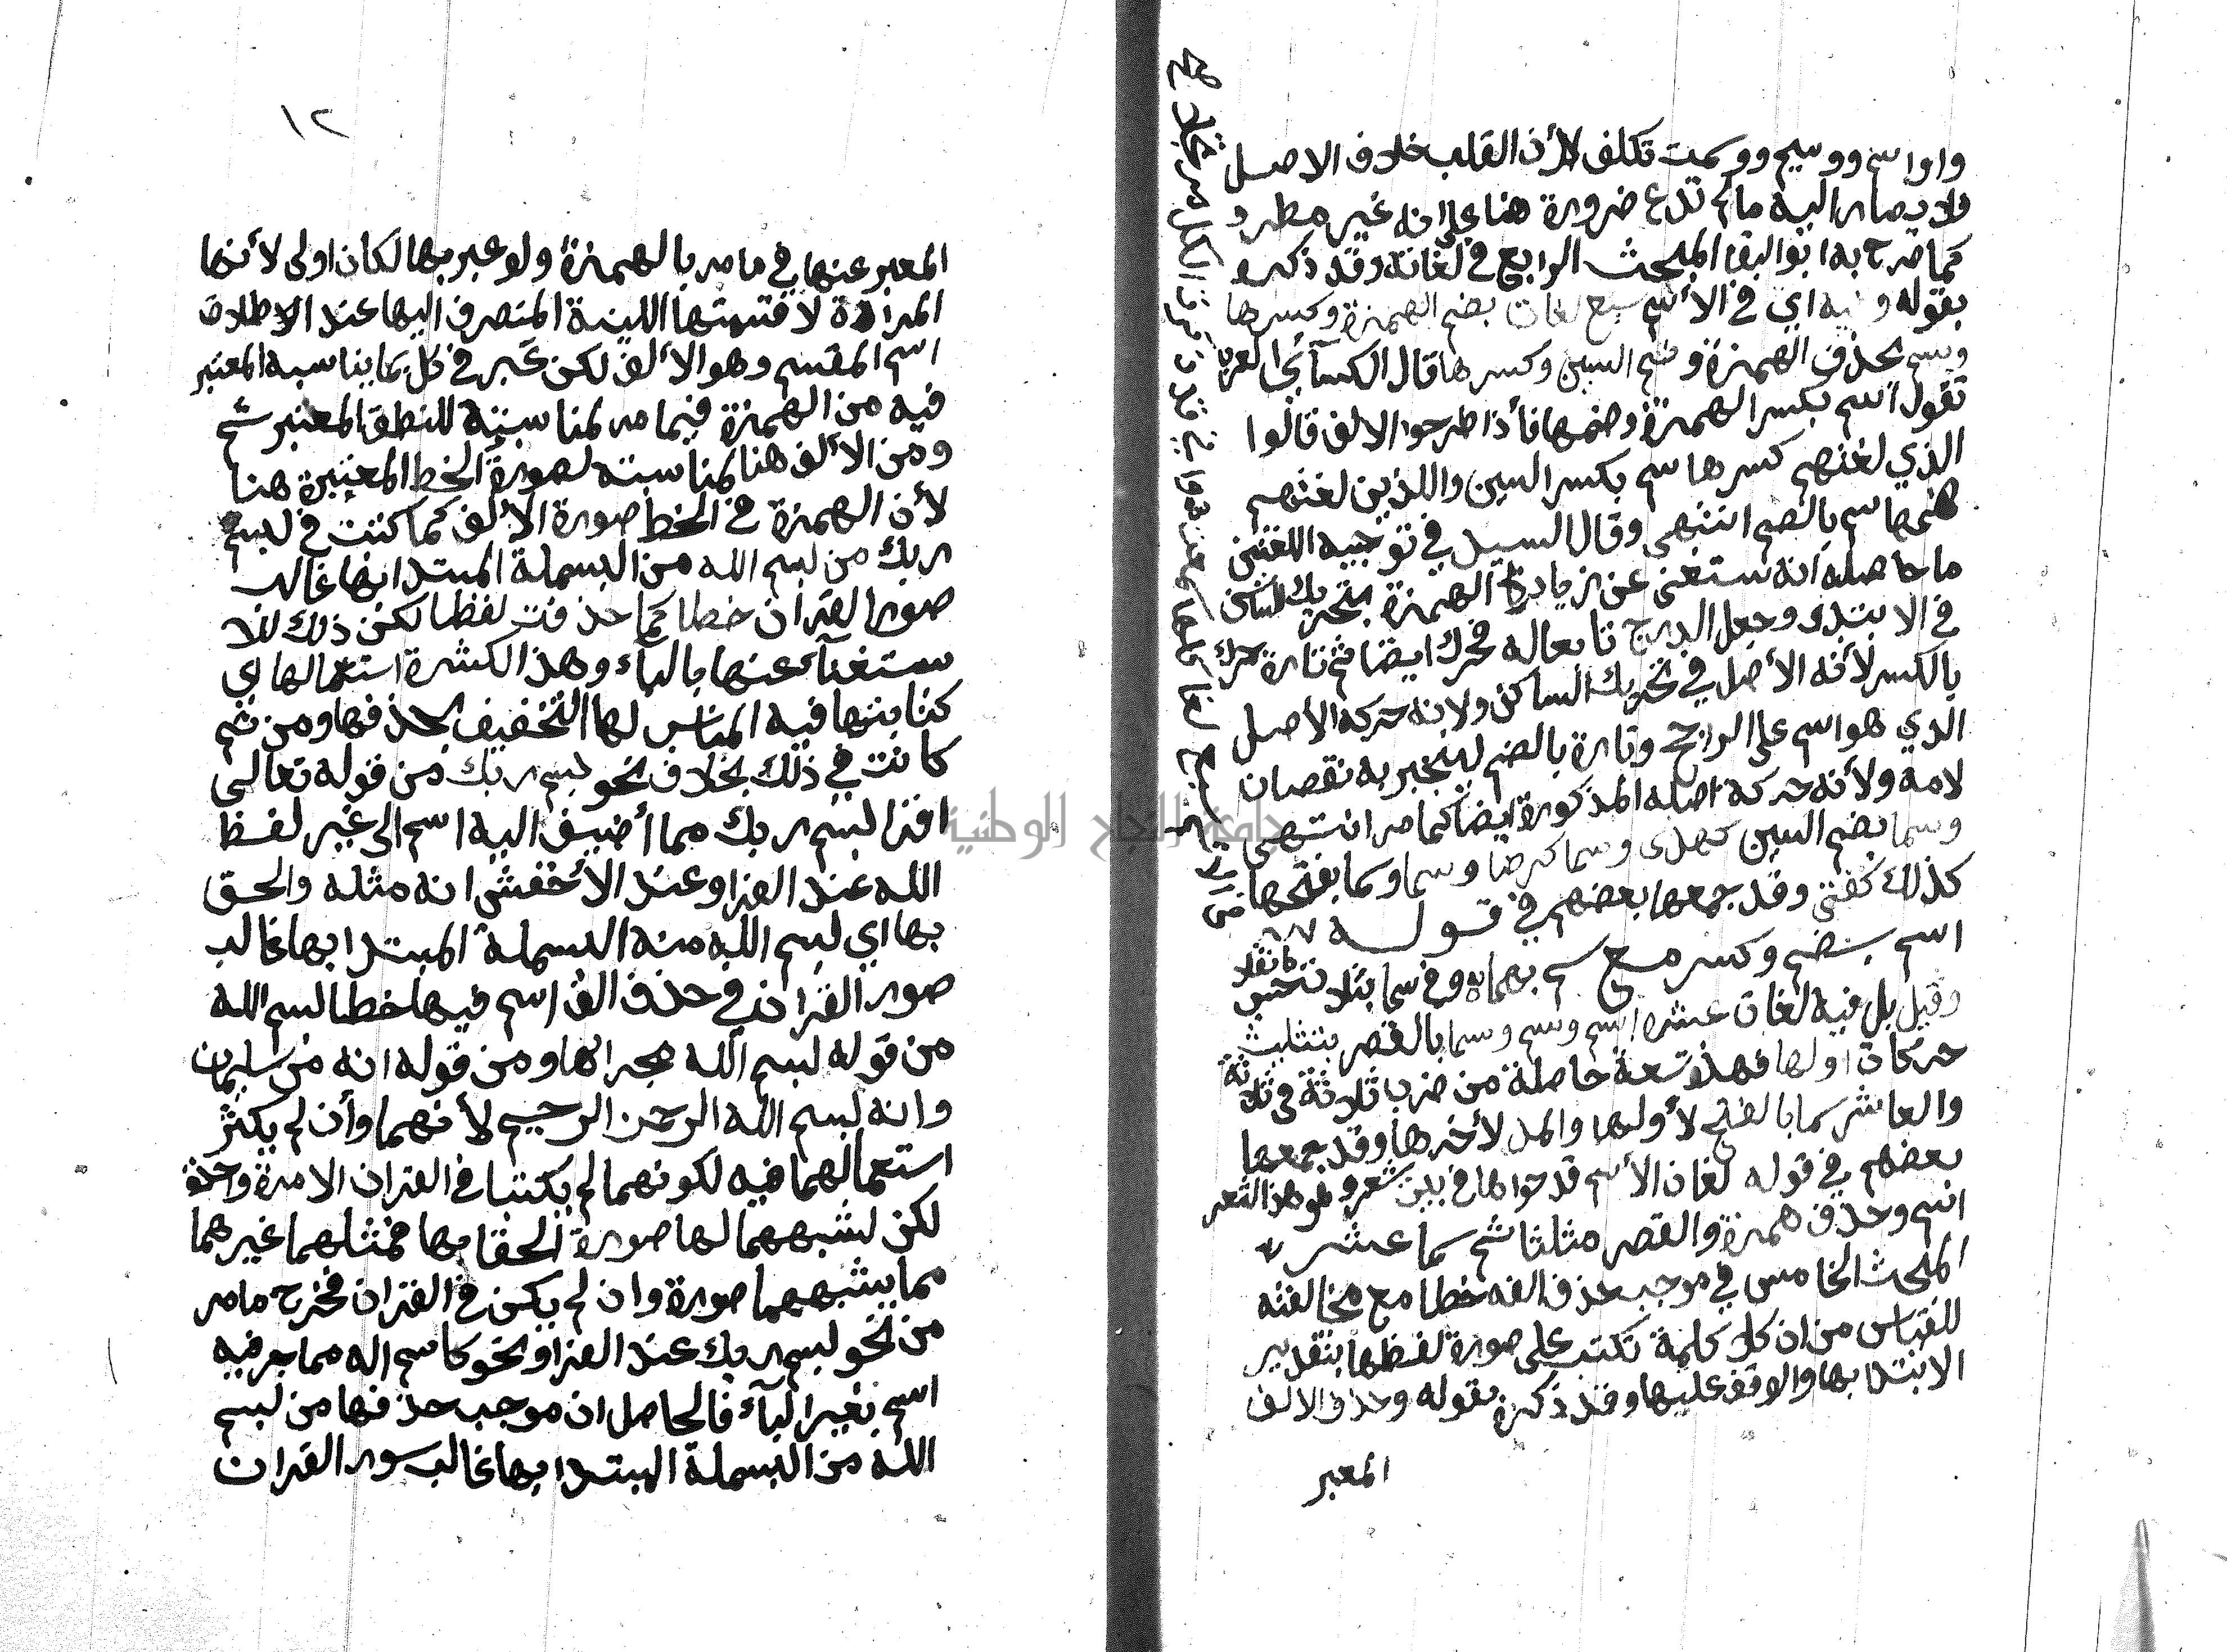 واواسم ووسيم ووسميت تكلف لأن القلب خلاف الاصل
ولا يصار اليه مالم تدع ضرورة هنا على انه غير مطرد
كما صرح به ابو البقا المبحث الرابع في لغاته وقد ذكره
بقوله وفيه اي في الأسم سبع لغات بضم الهمزة وكسرها
وسم بحذف الهمزة وضم السين وكسرها قال الكسآئي العرب
تقول اسم بكسر الهمزة وضمها فأذا طرحوا الالف قالوا
الذي لغتهم كسرها سم بكسر السين والذين لغتهم
ضمها سم بالضم انتهى وقال السيد في توجيه اللغتين
ما حاصله انه ستغنى عن زيادة الهمزة بتحريك الساكن
في الابتدى وجعل الدرج تابعا له فحرك ايضا ثم تارة حرك
بالكسر لأنه الأصل في تحريك الساكن ولانه حركة الأصل
الذي هو اسم على الراجح وتارة بالضم لينجبر به نقصان
لامه ولأنه حركة اصله المذكورة ايضا كما مر انتهى
وسما بضم السين كهدى وسما كرضا وسما وكما بفتحها
كذلك كفتى وقد جمعها بعضهم في قوله
اسم بضم وكسر مع سم بهما وفي سما بثلاث تحق ما نقلا
وقيل بل فيه لغات عشرة اسم وسم وسما بالقصر بتثليث
حركات اولها فهذه تسعة حاصلة من ضرب ثلاثة في ثلاثة
والعاشر سما بالفتح لأولها والمد لأخرها وقد جمعها
بعضهم في قوله لغات الأسم قد حواها في بيت شعر وهو هذا الشعر
اسم وحذف همزة والقصر مثلثا ثم سما عشر
المبحث الخامس في موجب حذف الفه خطا مع مخالفته
للقياس من ان كل كلمة تكتب على صورة لفظها بتقدير
الابتدا بها والوقف عليها وقد ذكره بقوله وحذف الالف
المعبر
١٢
المعبر عنها في ما مر بالهمزة ولو عبر بها لكان اولى لأنها
المرادة لا قسيمتها اللينة المنصرف اليها عند الاطلاق
اسم المقسم وهو الألف لكن عبر في كل بما يناسبه المعتبر
فيه من الهمزة فيما مر لمناسبته للنطق المعتبر ثم
ومن الألف هنا لمناسبته لصورة الخط المعتبرة هنا
لأن الهمزة في الخط صورة الألف كما كتبت في لبسم
ربك من لبسم الله من البسملة المبتدا بها غالب
صور القران خطا كما حذفت لفظا لكن ذلك للا
ستغنآء عنها بالباء وهذا لكثرة استعمالها اي
كتابتها فيه المناسب لها التخفيف بحذفها ومن ثم
كانت في ذلك بخلاف نحو بسم ربك من قوله تعالى
اقرا لبسم ربك مما أضيف اليه اسم الى غير لفظ
الله عند الفرا وعند الأخفش انه مثله والحق
بها اي لبسم الله منه البسملة المبتدا بها غالب
صور القران في حذف الف اسم فيها خطا لبسم الله
من قوله لبسم الله مجراها ومن قوله انه من سليمان
وانه لبسم الله الرحمن الرحيم لأنهما وأن لم يكثر
استعمالهما فيه لكونهما لم يكتبا في القران الا مرة واحدة
لكن لشبههما لها صورة الحقا بها فمثلهما غيرهما
مما يشبههما صورة وان لم يكن في القران فخرج ما مر
من نحو لبسم ربك عند الفرا ونحو كاسم اله مما جر فيه
اسم بغير البآء فالحاصل ان موجب حذفها من لبسم
الله من البسملة المبتدا بها غالب سور القران
جامعة النجاح الوطنية